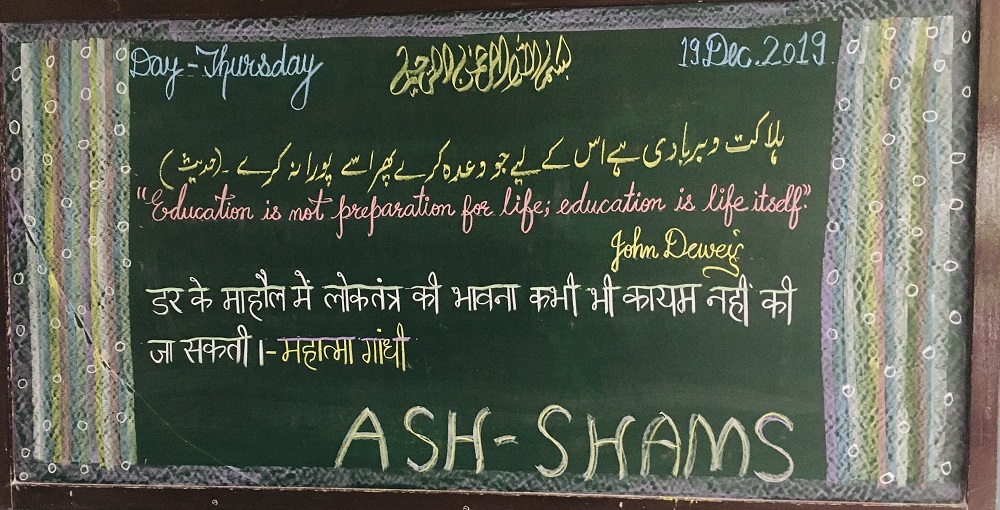 Day-Thursday
بسم اللہ الرحمن الرحیم
19 Dec. 2019
ہلاکت و بربادی ہے اس کے لیے جو وعدہ کرے پھر اسے پورا نہ کرے ۔ (حدیث)
"Education is not preparation for life; education is life itself."
John Dewey
डर के माहौल में लोकतंत्र की भावना कभी भी कायम नहीं की
जा सकती।-महात्मा गांधी
ASH-SHAMS